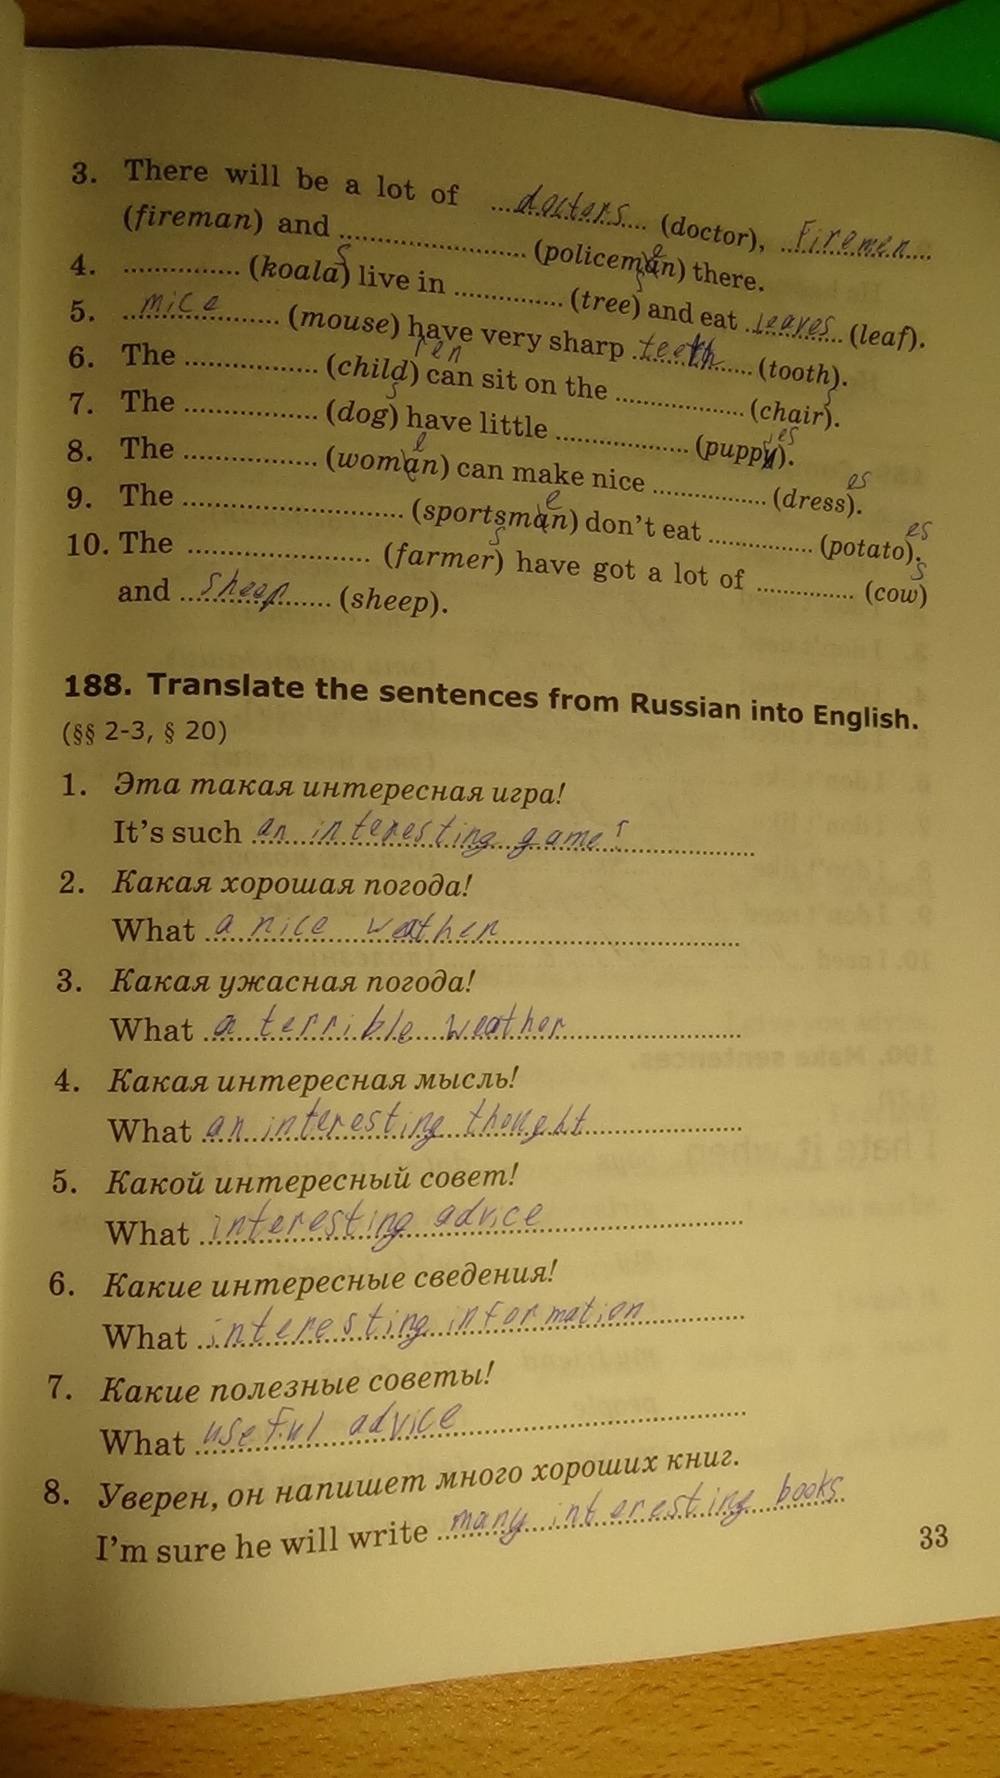 3. There will be a lot of doctors (doctor), Firemen
(fireman) and .................... (policeman e) there.
4. .............. (koala s) live in .............. (tree s) and eat leaves (leaf).
5. mice (mouse) have very sharp teeth (tooth).
6. The ................ (child ren) can sit on the ................ (chair s).
7. The ................ (dog s) have little ................ (puppy ies).
8. The ................ (woman e) can make nice .............. (dress es).
9. The .......................... (sportsman e) don't eat ............. (potato es).
10. The ...................... (farmer s) have got a lot of ............ (cow s)
and sheep (sheep).
188. Translate the sentences from Russian into English.
(§§ 2-3, § 20)
1. Эта такая интересная игра!
It's such an interesting game!
2. Какая хорошая погода!
What a nice weather
3. Какая ужасная погода!
What a terrible weather
4. Какая интересная мысль!
What an interesting thought
5. Какой интересный совет!
What interesting advice
6. Какие интересные сведения!
What interesting information
7. Какие полезные советы!
What useful advice
8. Уверен, он напишет много хороших книг.
I'm sure he will write many interesting books
33